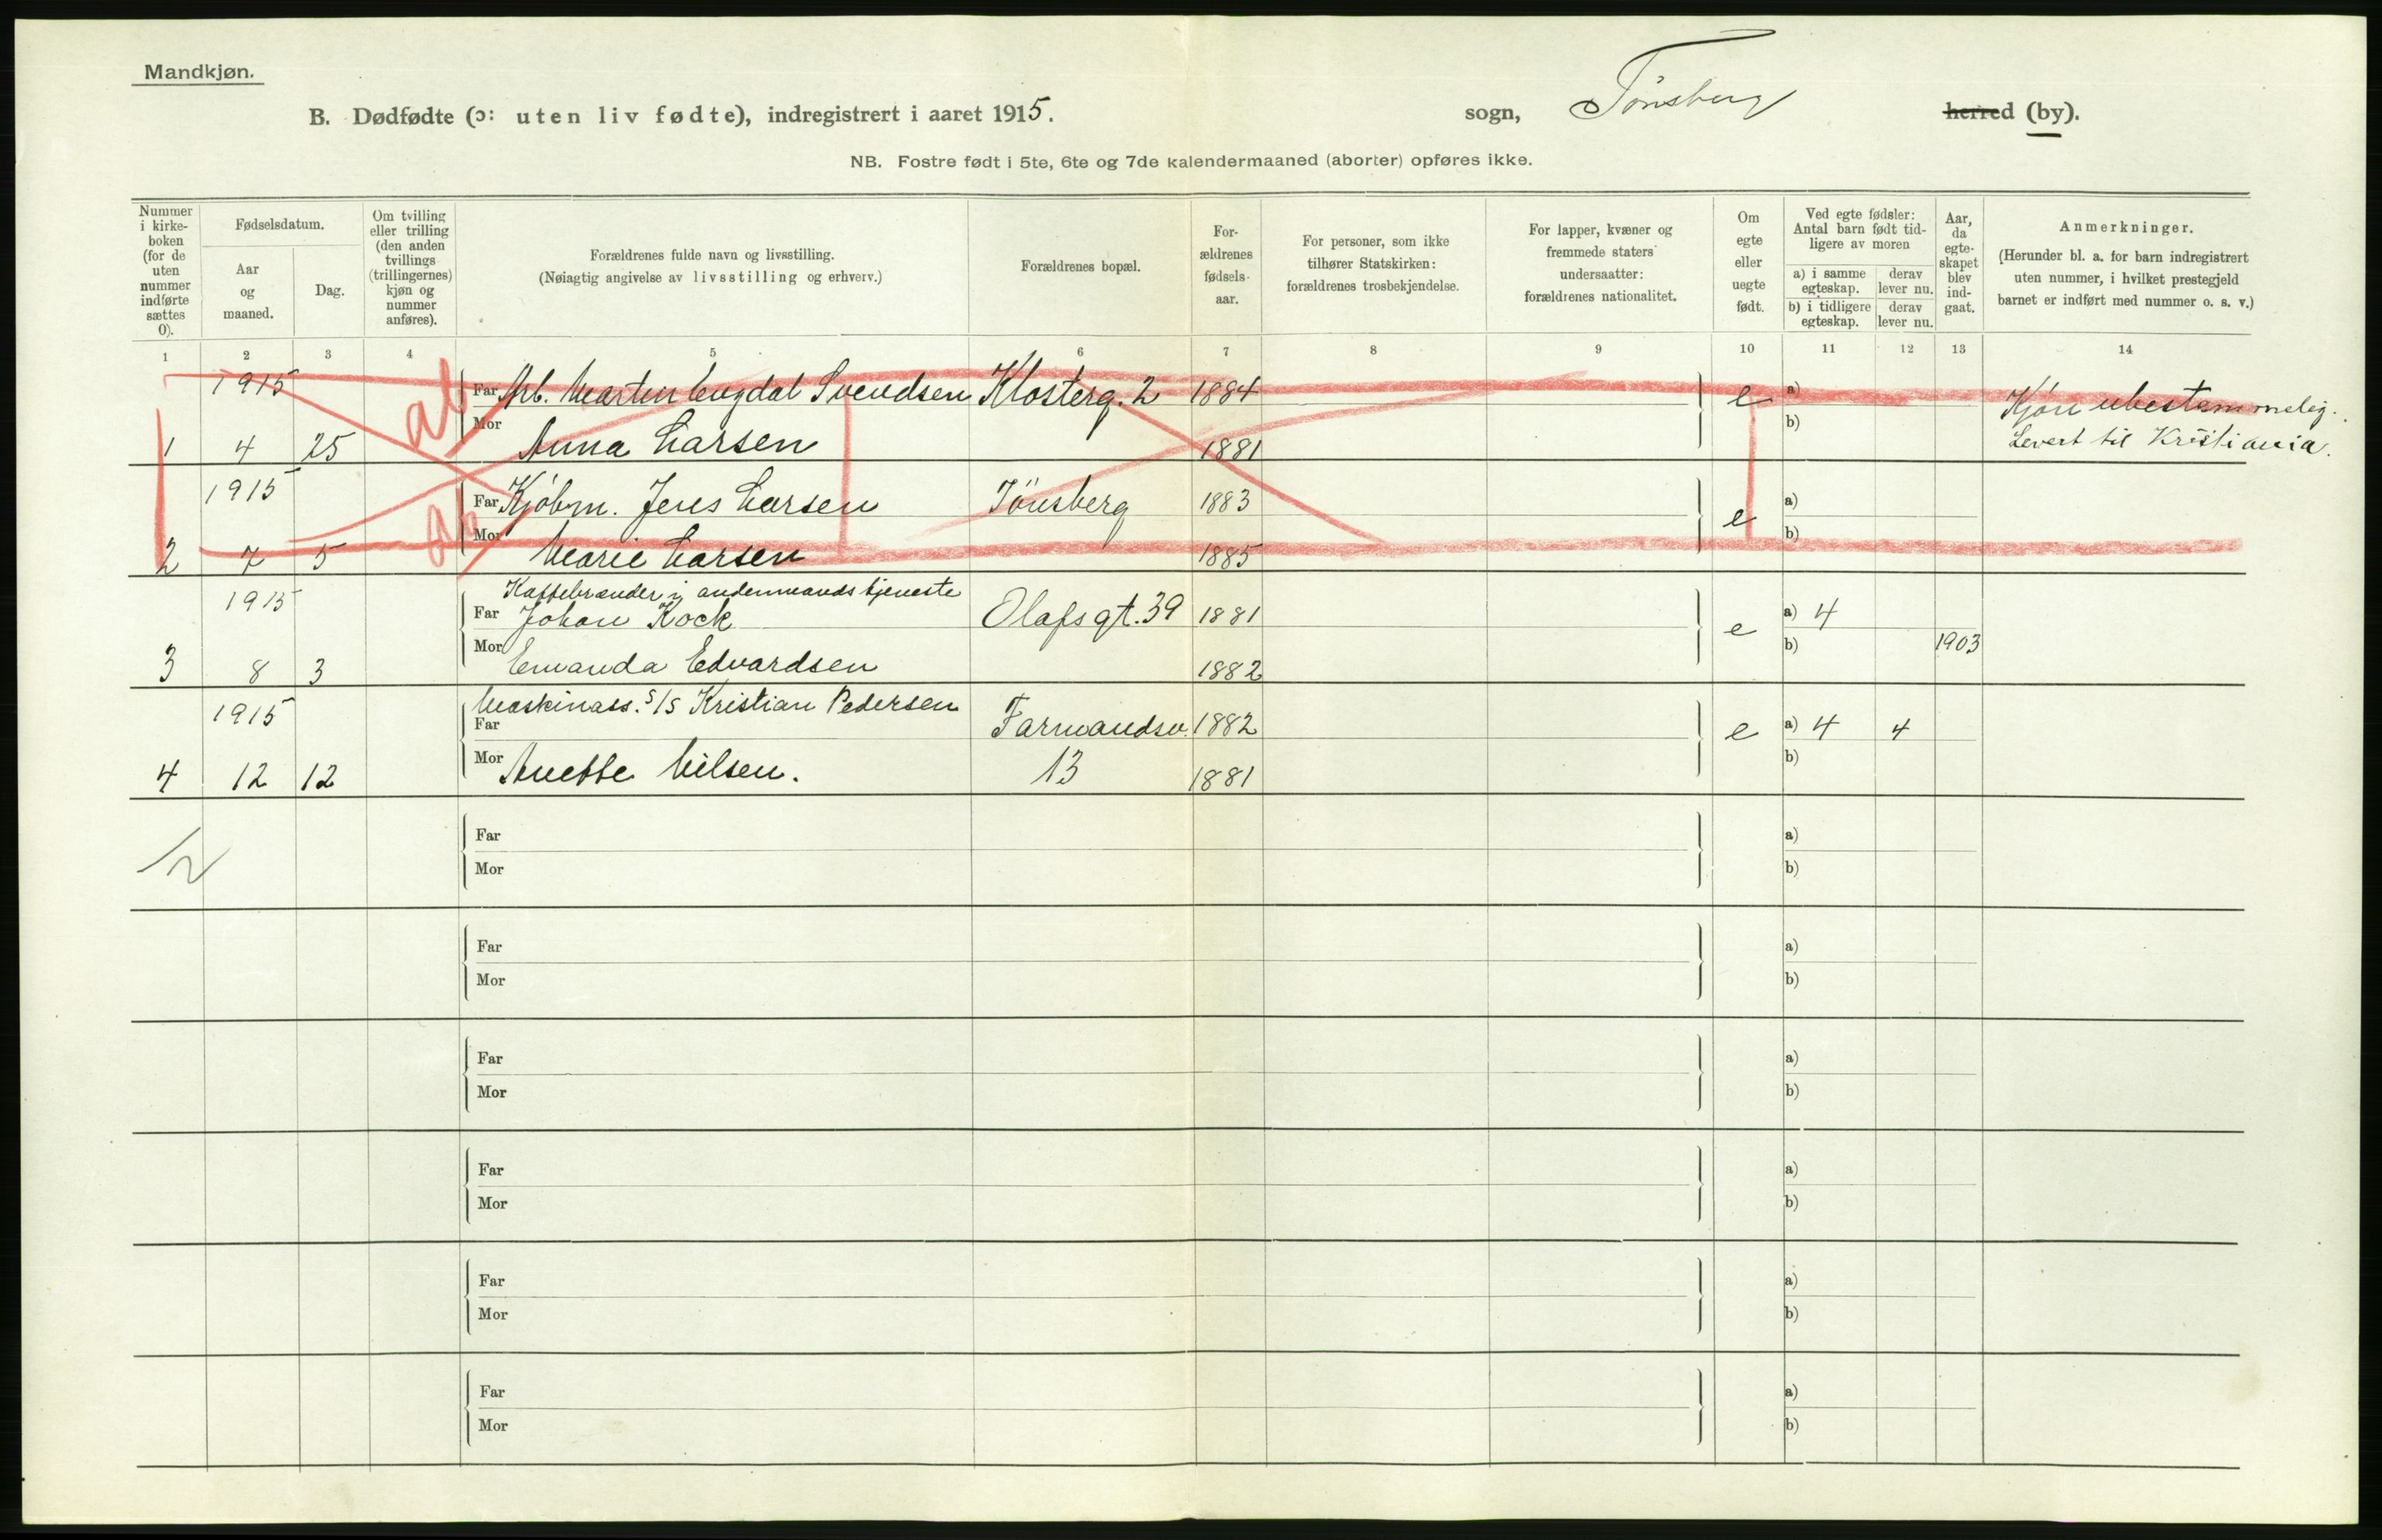 Mandkjøn.
B. Dødfødte (ɔ: uten liv fødte), indregistrert i aaret 1915. sogn, Tönsberg herred (by).
NB. Fostre født i 5te, 6te og 7de kalendermaaned (aborter) opføres ikke.
Nummer i kirke-boken (for de uten nummer indførte sættes 0).
Fødselsdatum.
Aar og maaned.
Dag.
Om tvilling eller trilling (den anden tvillings (trillingernes) kjøn og nummer anføres).
Forældrenes fulde navn og livsstilling.
(Nøiagtig angivelse av livsstilling og erhverv.)
Forældrenes bopæl.
For-ældrenes fødsels-aar.
For personer, som ikke tilhører Statskirken: forældrenes trosbekjendelse.
For lapper, kvæner og fremmede staters undersaatter: forældrenes nationalitet.
Om egte eller uegte født.
Ved egte fødsler: Antal barn født tid-ligere av moren
a) i samme egteskap.
derav lever nu.
b) i tidligere egteskap.
derav lever nu.
Aar, da egte-skapet blev ind-gaat.
Anmerkninger.
(Herunder bl. a. for barn indregistrert uten nummer, i hvilket prestegjeld barnet er indført med nummer o. s. v.)
1 2 3 4 5 6 7 8 9 10 11 12 13 14
1915 ab Far Arb. Martin Engdal Svendsen Klosterg. 2 1884 e a) Kjön ubestemmelig.
1 4 25 Mor Anna Larsen 1881 b) Levert til Kristiania.
1915 ab Far Kjöbm. Jens Larsen Tönsberg 1883 e a)
2 7 5 Mor Marie Larsen 1885 b)
Kaffebrænder i andenmands tjeneste
1915 Far Johan Kock Olafsgt. 39 1881 e a) 4
3 8 3 Mor Emanda Edvardsen 1882 b) 1903
Maskinass. S/S Kristian Pedersen
1915 Far Farmandsv. 1882 e a) 4 4
4 12 12 Mor Anette Nilsen. 13 1881 b)
Far a)
Mor b)
Far a)
Mor b)
Far a)
Mor b)
Far a)
Mor b)
Far a)
Mor b)
Far a)
Mor b)